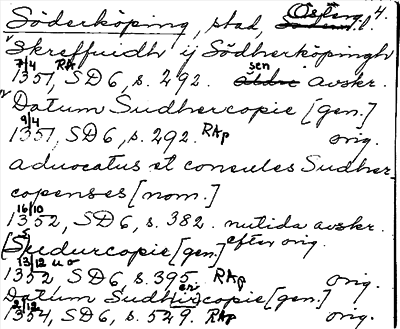 Söderköping, stad, Österg. l. 4.
"Skreffuidh ij Södherköpingh
7/4 1351, RA SD 6, s. 292. sen avskr.
Datum Sudhercopie [gen.]
9/4 1351, SD 6, s. 292. RAp orig.
advocatus et consules Sudher-
copenses [nom.]
16/10 1352, SD 6, s. 382. nutida avskr.
efter orig.
[S]uedurcopie [gen.]
13/12 u o 1352, SD 6, s. 395, RAp orig.
Datum Sudhercopie [gen.]
2/12 1354, SD 6, s. 529. RAp orig.